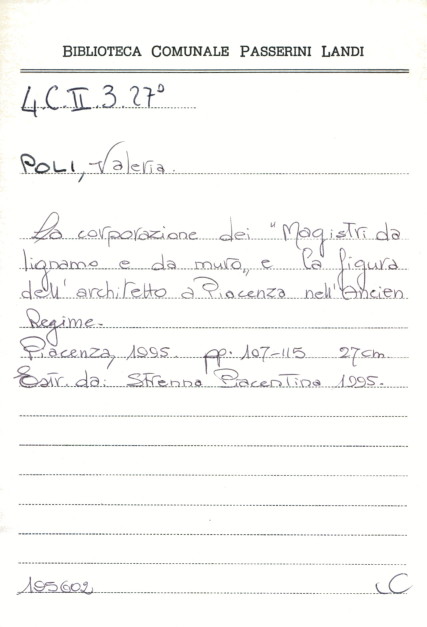 BIBLIOTECA COMUNALE PASSERINI LANDI
4.C.II.3.27°
POLI, Valeria.
La corporazione dei "Magistri da
lignamo e da muro„ e la figura
dell'architetto a Piacenza nell'Ancien
Regime.
Piacenza, 1995. pp. 107-115 27cm
Estr. da: Strenna Piacentina 1995.
195602 C